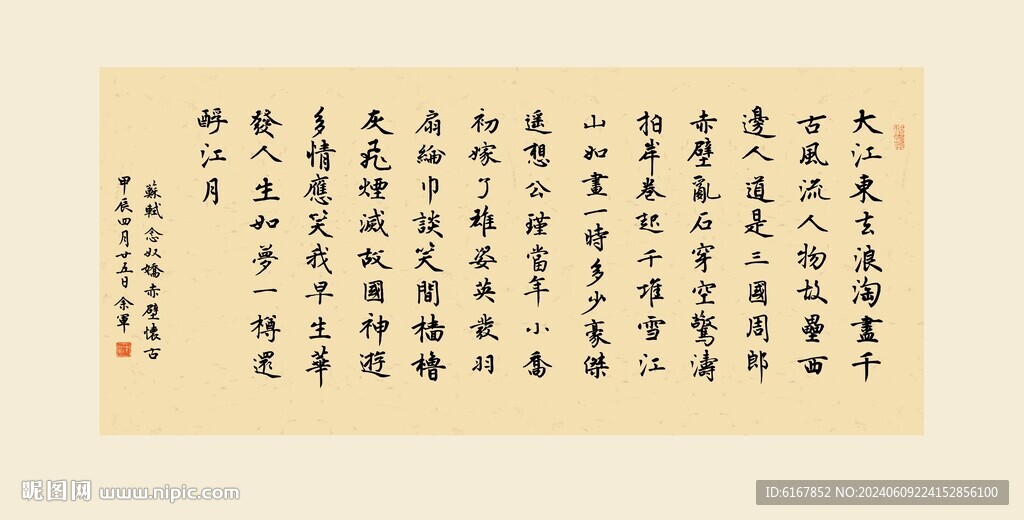 大江東去浪淘盡千
古風流人物故壘西
邊人道是三國周郎
赤壁亂石穿空驚濤
拍岸卷起千堆雪江
山如畫一時多少豪傑
遥想公瑾當年小喬
初嫁了雄姿英發羽
扇綸巾談笑間檣櫓
灰飛煙滅故國神遊
多情應笑我早生華
發人生如夢一樽還
酹江月
蘇軾念奴嬌赤壁懷古
甲辰四月廿五日余軍
昵图网 www.nipic.com
ID:6167852 NO:20240609224152856100